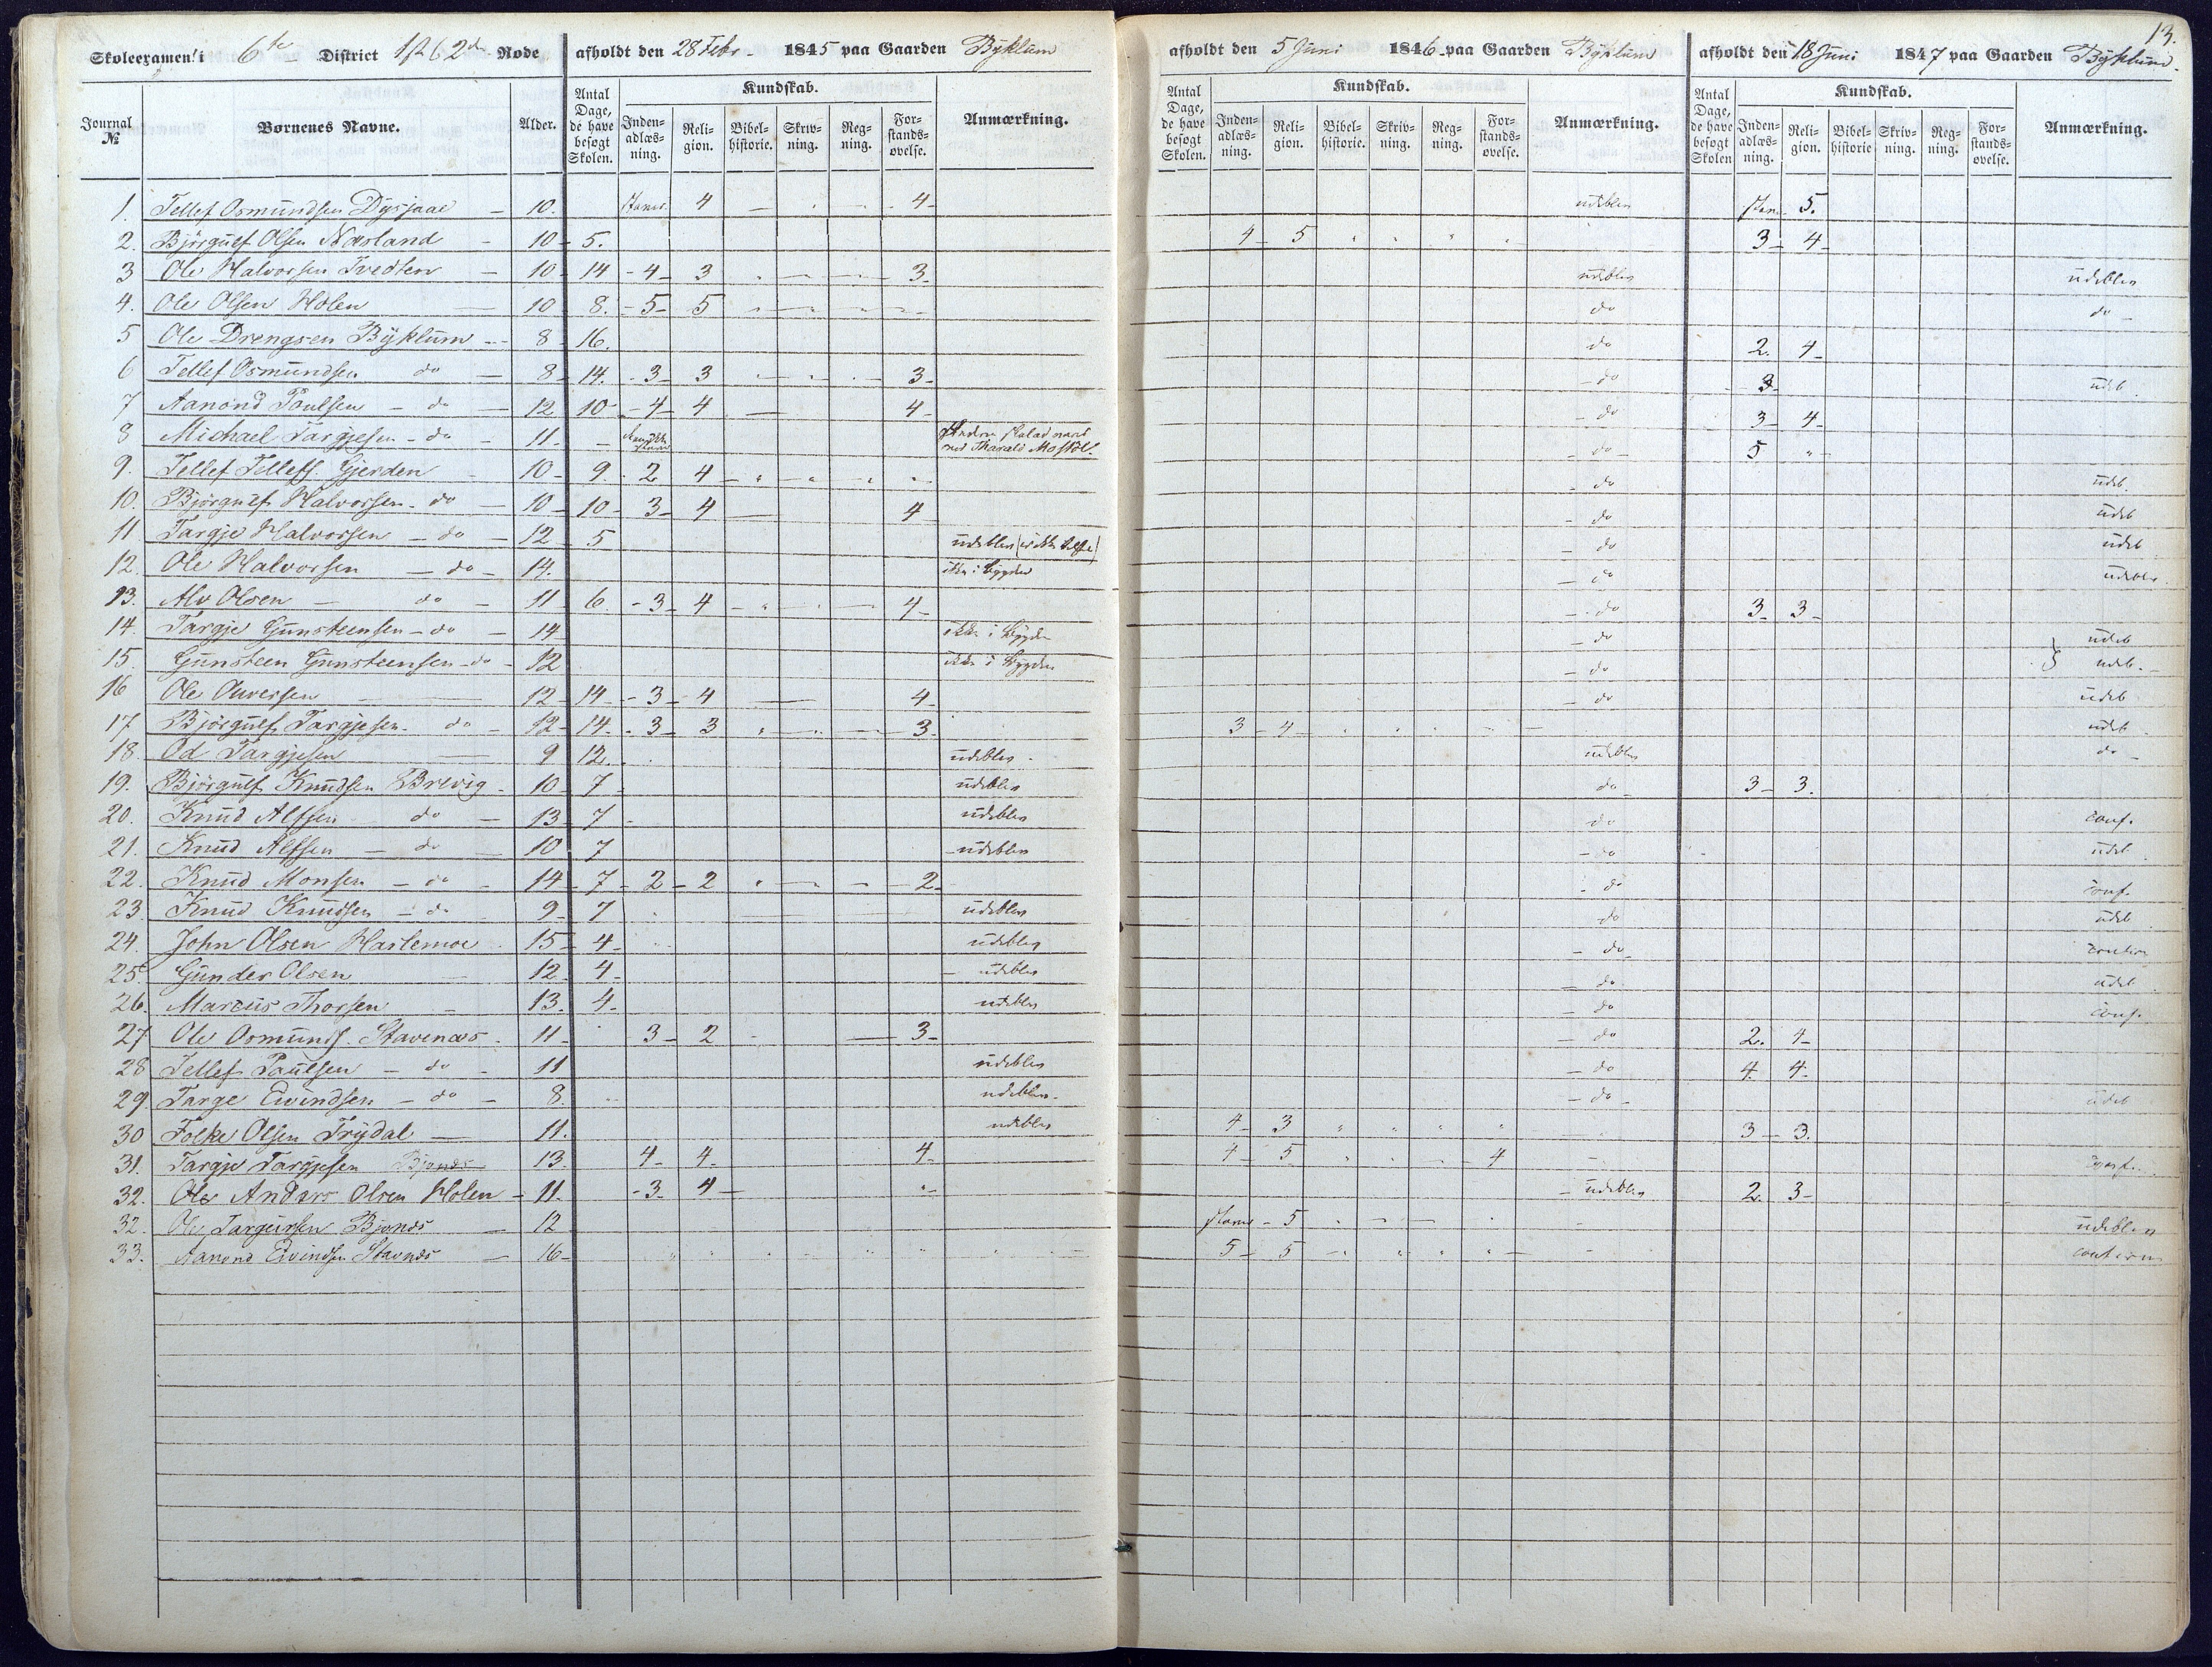 13.
Skoleexamen i 6te District 1st & 2den Rode afholdt den 28 Febr. 1845 paa Gaarden Byklum afholdt den 5 Juni 1846 paa Gaarden Byklum afholdt den 18 Juni 1847 paa Gaarden Byklum.
Kundskab. Kundskab. Kundskab.
Journal № Børnenes Navne. Alder. Antal Dage, de have besøgt Skolen. Inden-adlæs-ning. Reli-gion. Bibel-historie. Skriv-ning. Reg-ning. For-stands-øvelse. Anmærkning. Antal Dage, de have besøgt Skolen. Inden-adlæs-ning. Reli-gion. Bibel-historie. Skriv-ning. Reg-ning. For-stands-øvelse. Anmærkning. Antal Dage, de have besøgt Skolen Inden-adlæs-ning. Reli-gion. Bibel-historie Skriv-ning. Reg-ning. For-stands-øvelse. Anmærkning.
1. Tellef Osmundsen Dysjaae - 10. staver 4 - - - 4 udeblev stav. 5.
2. Björgulf Olsen Næsland - 10 - 5. 4 - 5 " " " " 3 - 4 -
3 Ole Halvorsen Tvedten - 10 - 14 - 4 - 3 - 3. udeblev udeblev
4. Ole Olsen Holen - 10 8. - 5 - 5 do do -
5 Ole Drengsen Byklum - 8 - 16. do 2. 4 -
6 Tellef Osmundsen do - 8 - 14. - 3 - 3 - 3 - - do - 3 udeb.
7 Aanond Poulsen - do - 12 10 - 4 - 4 - 4 - - do 3 - 4 -
8 Michael Targjesen - do - 11. - - do - 5 " -
9. Tellef Tellefs. Gjerden - 10 - 9. - 2 4 - " " " " - do udeb.
10. Björgulf Halvorsen - do - 10 - 10 - 3 - 4 - 4 - do udeb
11 Targje Halvorsen - do - 12 - 5 udeblev - do udeb
12. Ole Halvorsen - do - 14. ikke i Bygden - do udeblev.
13. Alv Olsen - do - 11 6. - 3 - 4 - 4 - - do 3 3 -
14. Targje Gunsteensen - do - 14 ikke i Bygden - do udeb
15. Gunsteen Gunsteensen - do - 12 ikke i Bygden - do } udeb. -
16 Ole 12 - 14 - 3 - 4 - 4 - - do udeb
17. Björgulf Targjesen - do - 12 - 14. - 3 - 3 - 3. 3 - 4 - udeb
18. Od Targjesen 9 12. udeblev udeblev do -
19. Björgulf Knudsen Brevig - 10 - 7 - udeblev do - 3 - 3.
20. Knud Alfsen do - 13 - 7 - udeblev do conf.
21. Knud Alfsen - do - 10 7 - udeblev - do udeb
22. Knud Monsen - do - 14 - 7 - 2 - 2 " - - 2 - - do conf.
23. Knud Knudsen - do - 9 - 7 udeblev do udeb
24. John Olsen Hartemoe 15 - 4 - udeblev - do -
25. Gunder Olsen - 12 - 4 - - udeblev - do udeb
26. Marcus Thorsen - 13. 4. udeblev - do conf.
27 Ole Osmunds. Stavenæs - 11 - 3 - 2 - 3 - - do 2. 4 -
28 Tellef Paulsen - do - 11 udeblev - do 4. 4 -
29. Targe Eivindsen - do - 8. udeblev. - do - udeb
30 Folke Olsen Trydal - 11. udeblev 4 - 3 " " " " 3 - 3.
31. Targje Targjesen 13. 4 - 4 - 4 - 4 - 5 - 4 - conf.
32. Ole Anders Olsen Holen - 11. - 3 - 4 - " - - udeblev 2. 3 -
32. Ole Targeirsen Bjonæs - 12 staver - 5 udeblev
33. Aanond Eivindsen Stavnæs - 16 - 5 - 5 - " " " " -